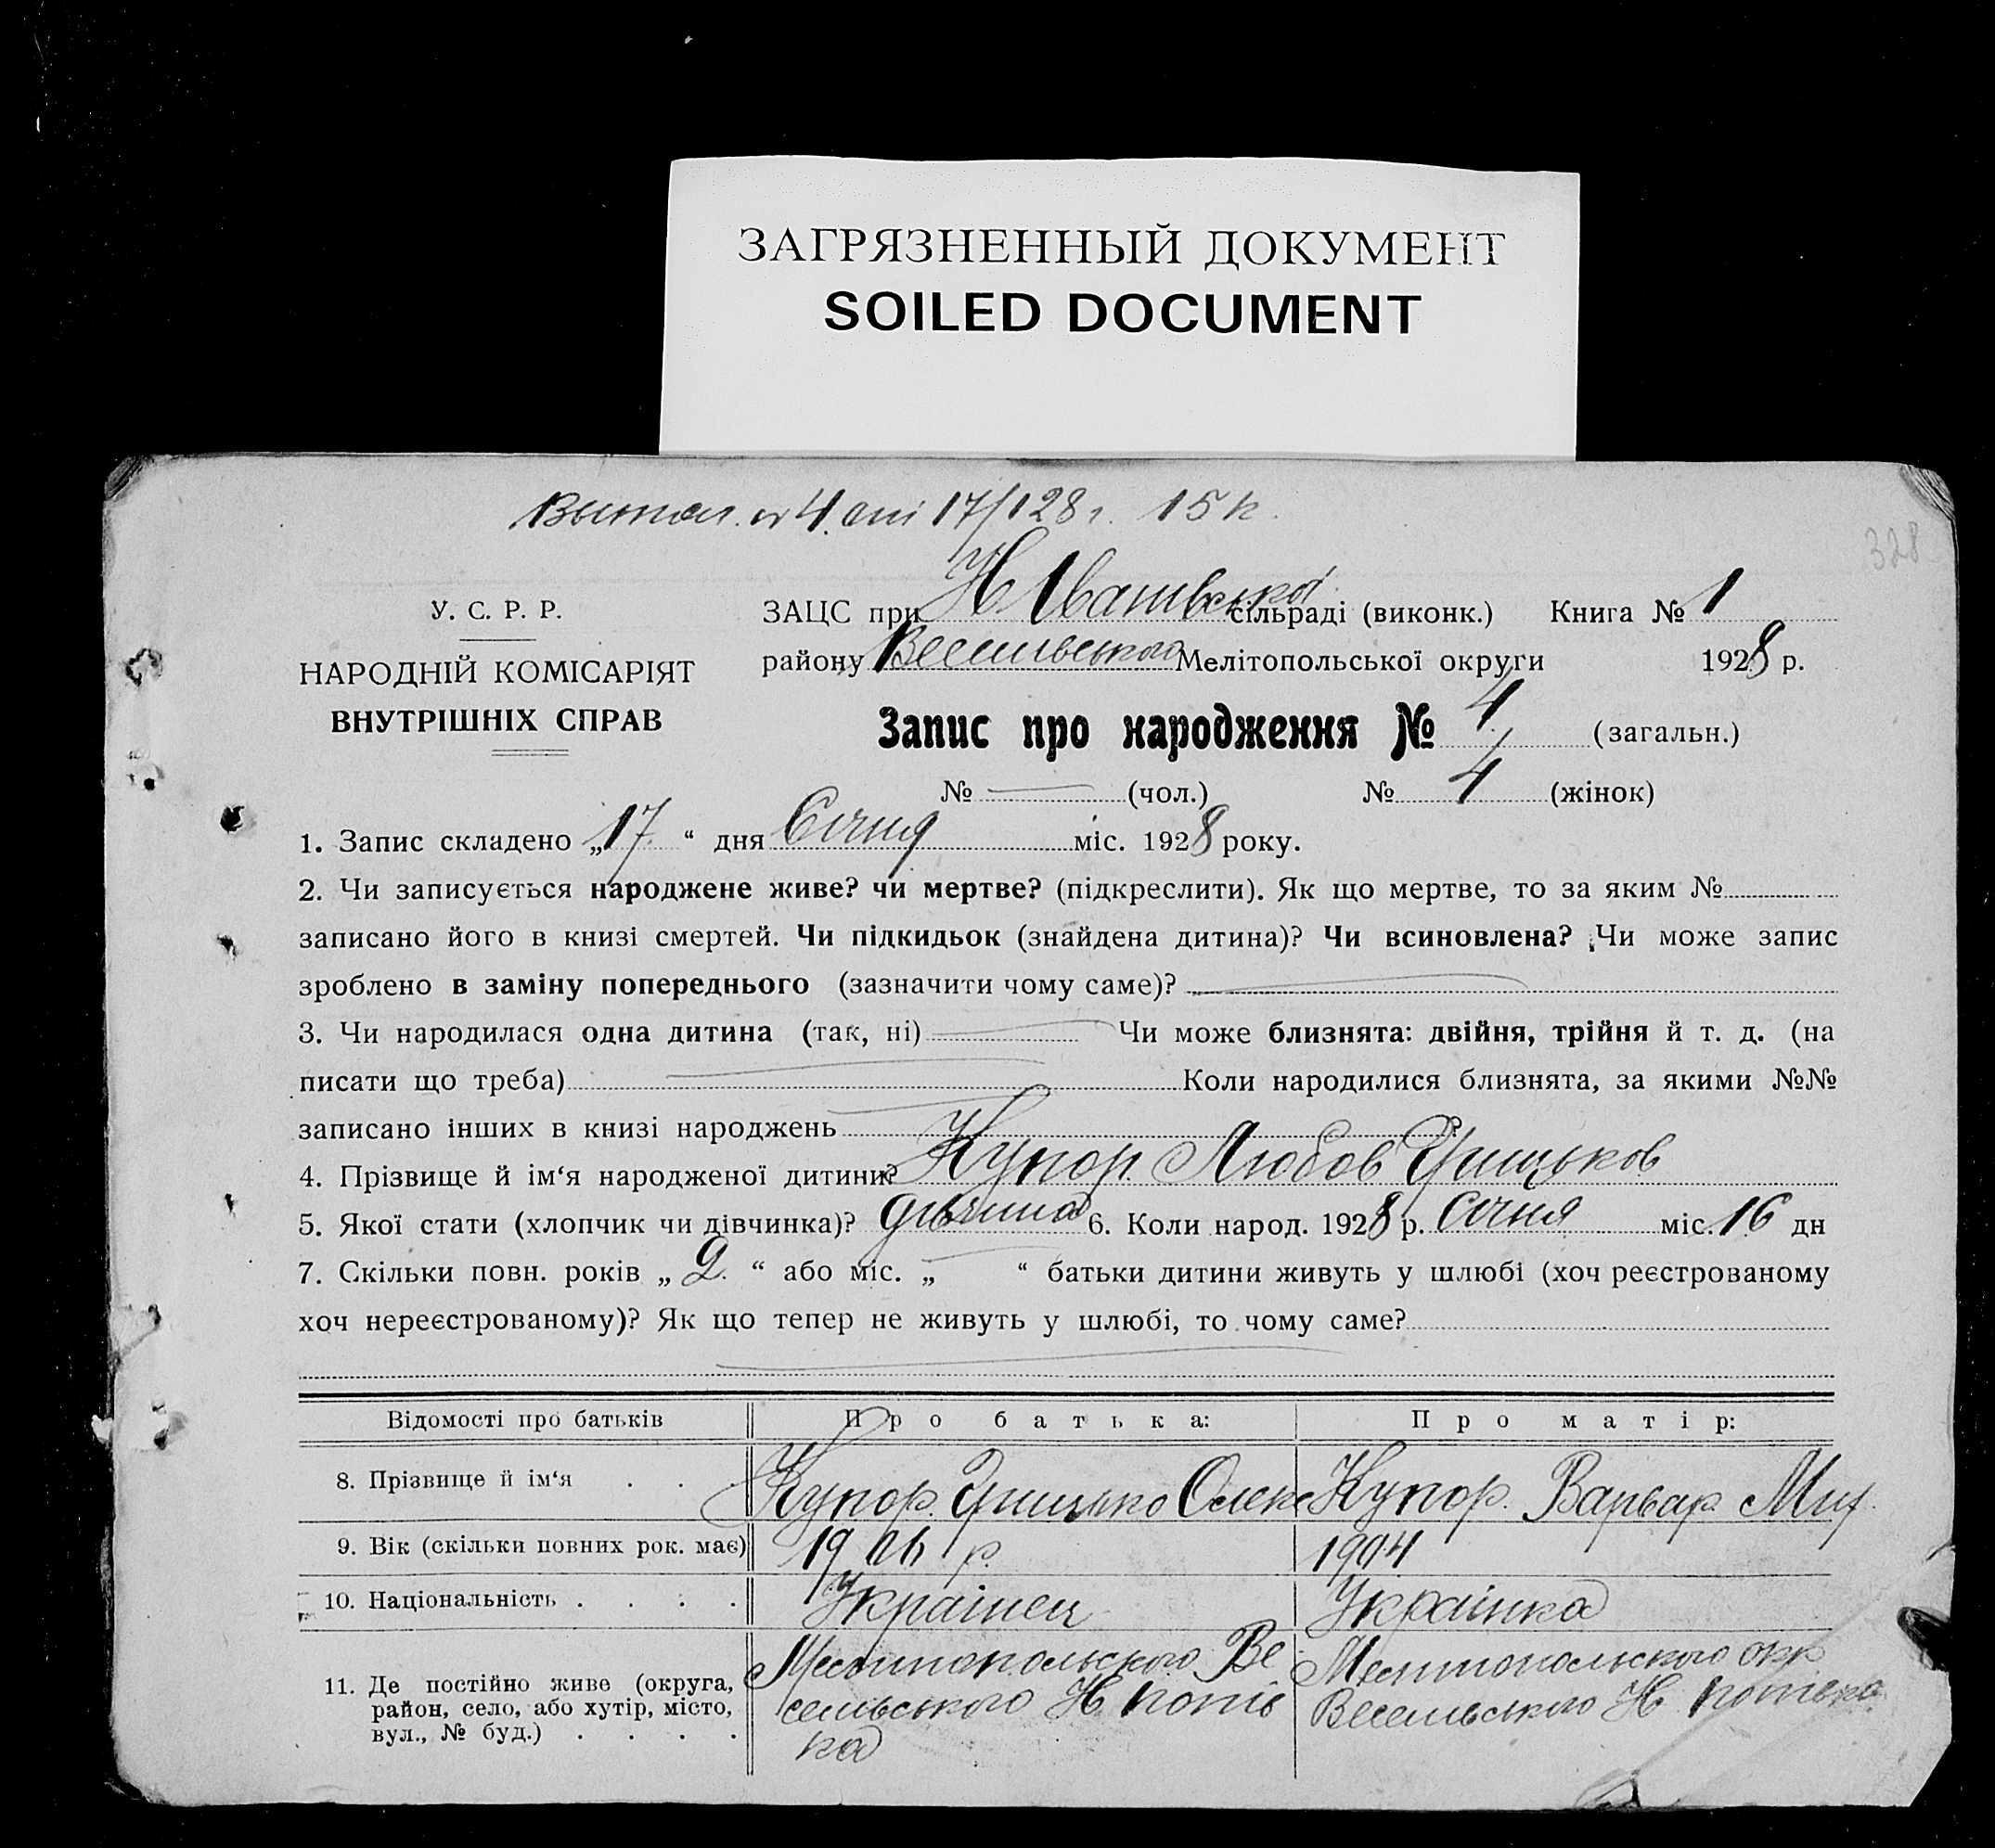 ЗАГРЯЗНЕННЫЙ ДОКУМЕНТ
SOILED DOCUMENT
17/I 28 г. 15 к.
328
У. С. Р. Р.
НАРОДНІЙ КОМІСАРІЯТ
ВНУТРІШНІХ СПРАВ
ЗАЦС при Н сільраді (виконк.) Книга № 1
району Веселівського Мелітопольської округи 1928 р.
Запис про народження № 4 (загальн.)
№ — (чол.) № 4 (жінок)
1. Запис складено „17“ дня Січня міс. 1928 року.
2. Чи записується народжене живе? чи мертве? (підкреслити). Як що мертве, то за яким №
записано його в книзі смертей. Чи підкидьок (знайдена дитина)? Чи всиновлена? Чи може запис
зроблено в заміну попереднього (зазначити чому саме)?
3. Чи народилася одна дитина (так, ні) Чи може близнята: двійня, трійня й т. д. (на
писати що треба) Коли народилися близнята, за якими №№
записано інших в книзі народжень ?
4. Прізвище й ім‘я народженої дитини? Купор Любов Грицьков
5. Якої стати (хлопчик чи дівчинка)? дівчина 6. Коли народ. 1928 р. Січня міс. 16 дн
7. Скільки повн. років „ 2. “ або міс. „ “ батьки дитини живуть у шлюбі (хоч реєстрованому
хоч нереєстрованому)? Як що тепер не живуть у шлюбі, то чому саме?
Відомості про батьків Про батька: Про матір:
8. Прізвище й ім‘я . . Купор Грицько Олекс Купор. Варвар Мит.
9. Вік (скільки повних рок. має) 1906 р. 1904
10. Національність . . . . Українец Українка
11. Де постійно живе (округа, район, село, або хутір, місто, вул., № буд.) . . . .
Мелитопольского Ве
сельського Н
ка
Мелитопольского окр
Весельського Н